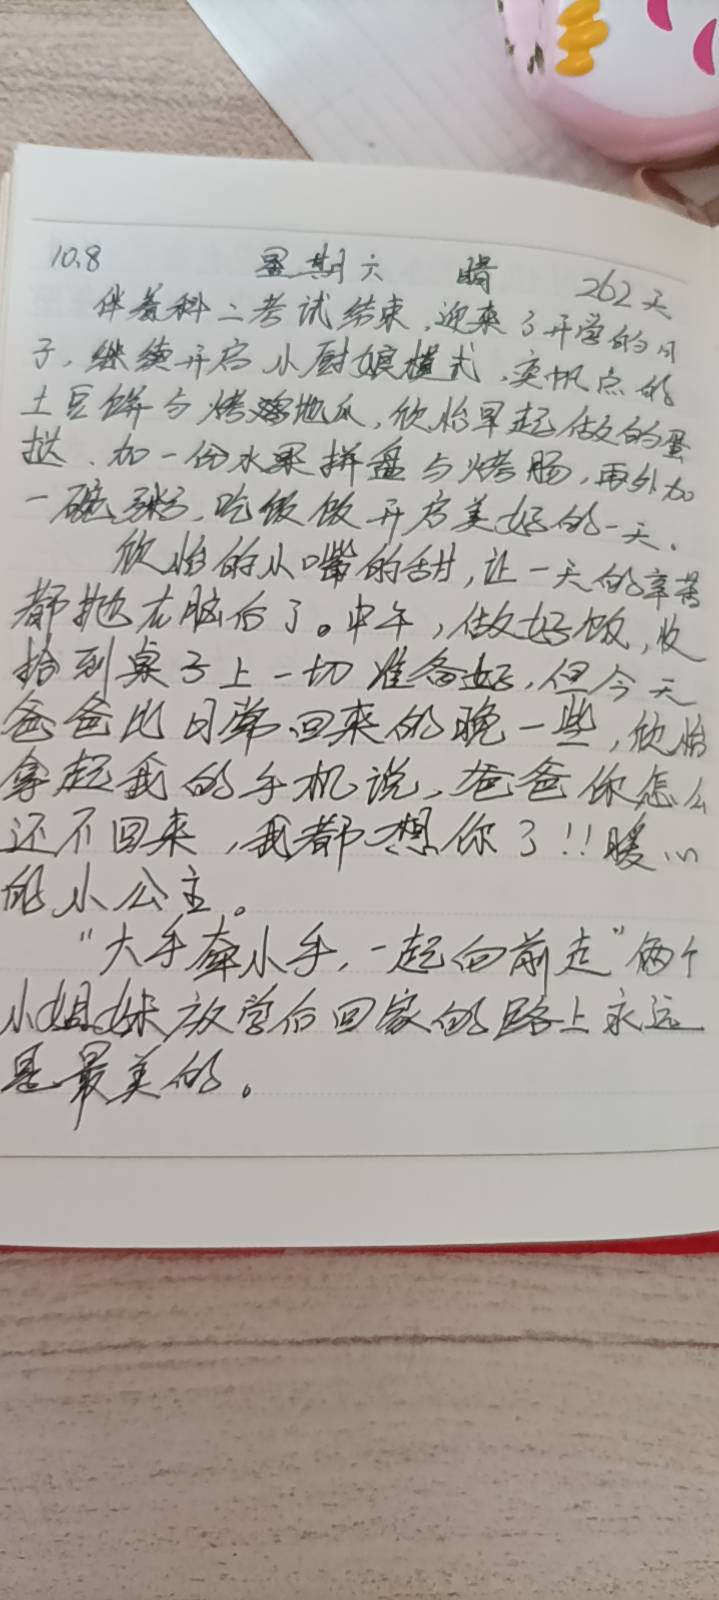 10.8 星期六 晴 262天
伴着科二考试结束,迎来了开学的日
子,继续开启小厨娘模式,奕帆点的
土豆饼与烤地瓜,欣怡早起做的蛋
挞、加一份水果拼盘与烤肠,再外加
一碗粥,吃饭饭开启美好的一天。
欣怡的小嘴的甜,让一天的辛苦
都抛在脑后了。中午,做好饭,收
拾到桌子上一切准备好,但今天
爸爸比日常回来的晚一些,欣怡
拿起我的手机说,爸爸你怎么
还不回来,我都想你了!!暖心
的小公主。
"大手牵小手,一起向前走"俩个
小姐妹放学后回家的路上永远
是最美的。